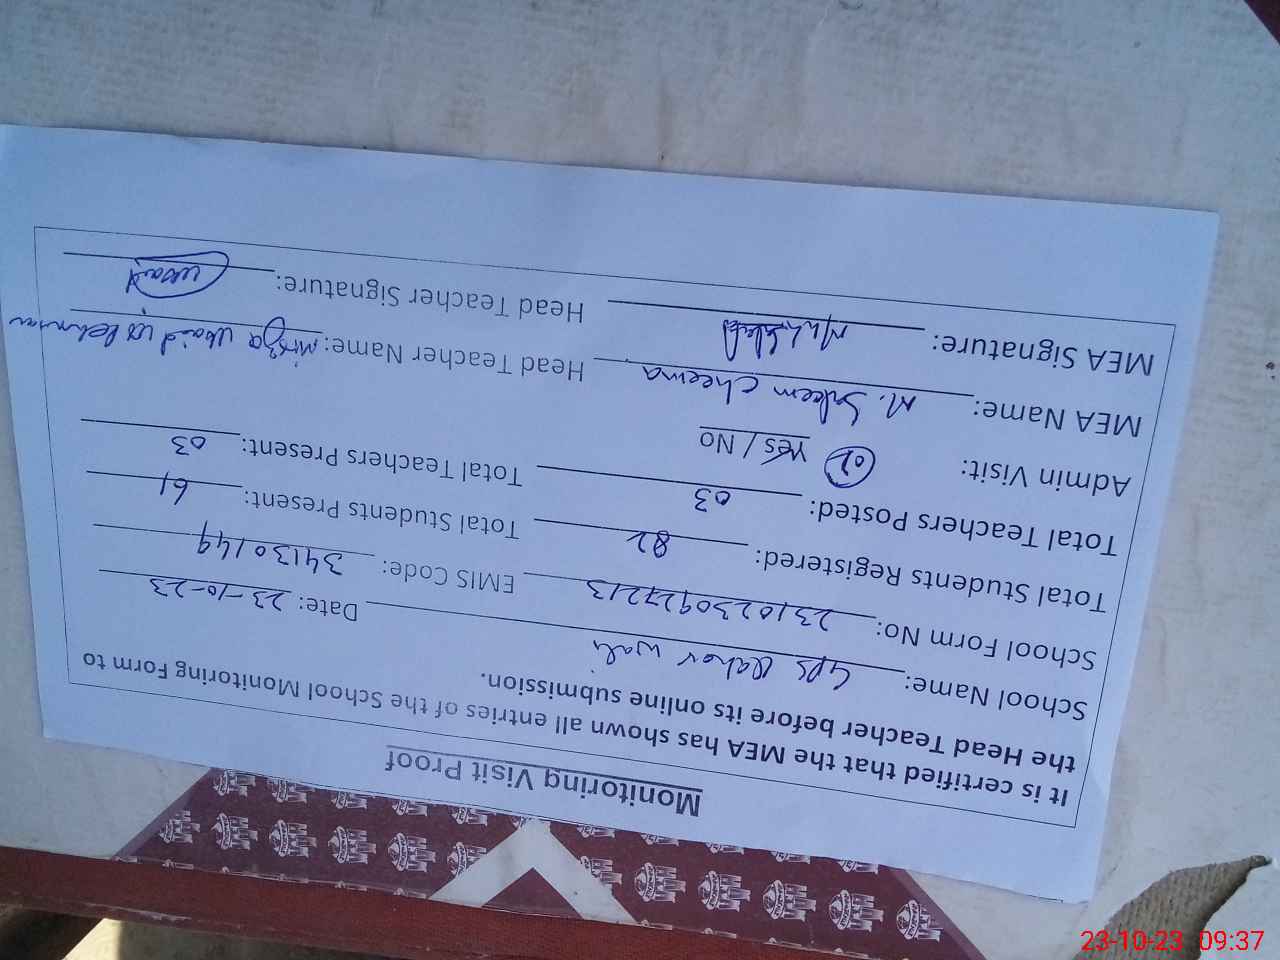 Monitoring Visit Proof
It is certified that the MEA has shown all entries of the School Monitoring Form to
the Head Teacher before its online submission.
School Name: GPS wali Date: 23-10-23
School Form No: EMIS Code: 34130149
Total Students Registered: 82 Total Students Present: 61
Total Teachers Posted: 03 Total Teachers Present: 03
Admin Visit: 01 Yes / No
MEA Name: M. Saleem Cheema Head Teacher Name: Mirza Ubaid ur Rehman
MEA Signature: Head Teacher Signature: Ubaid
23-10-23 09:37